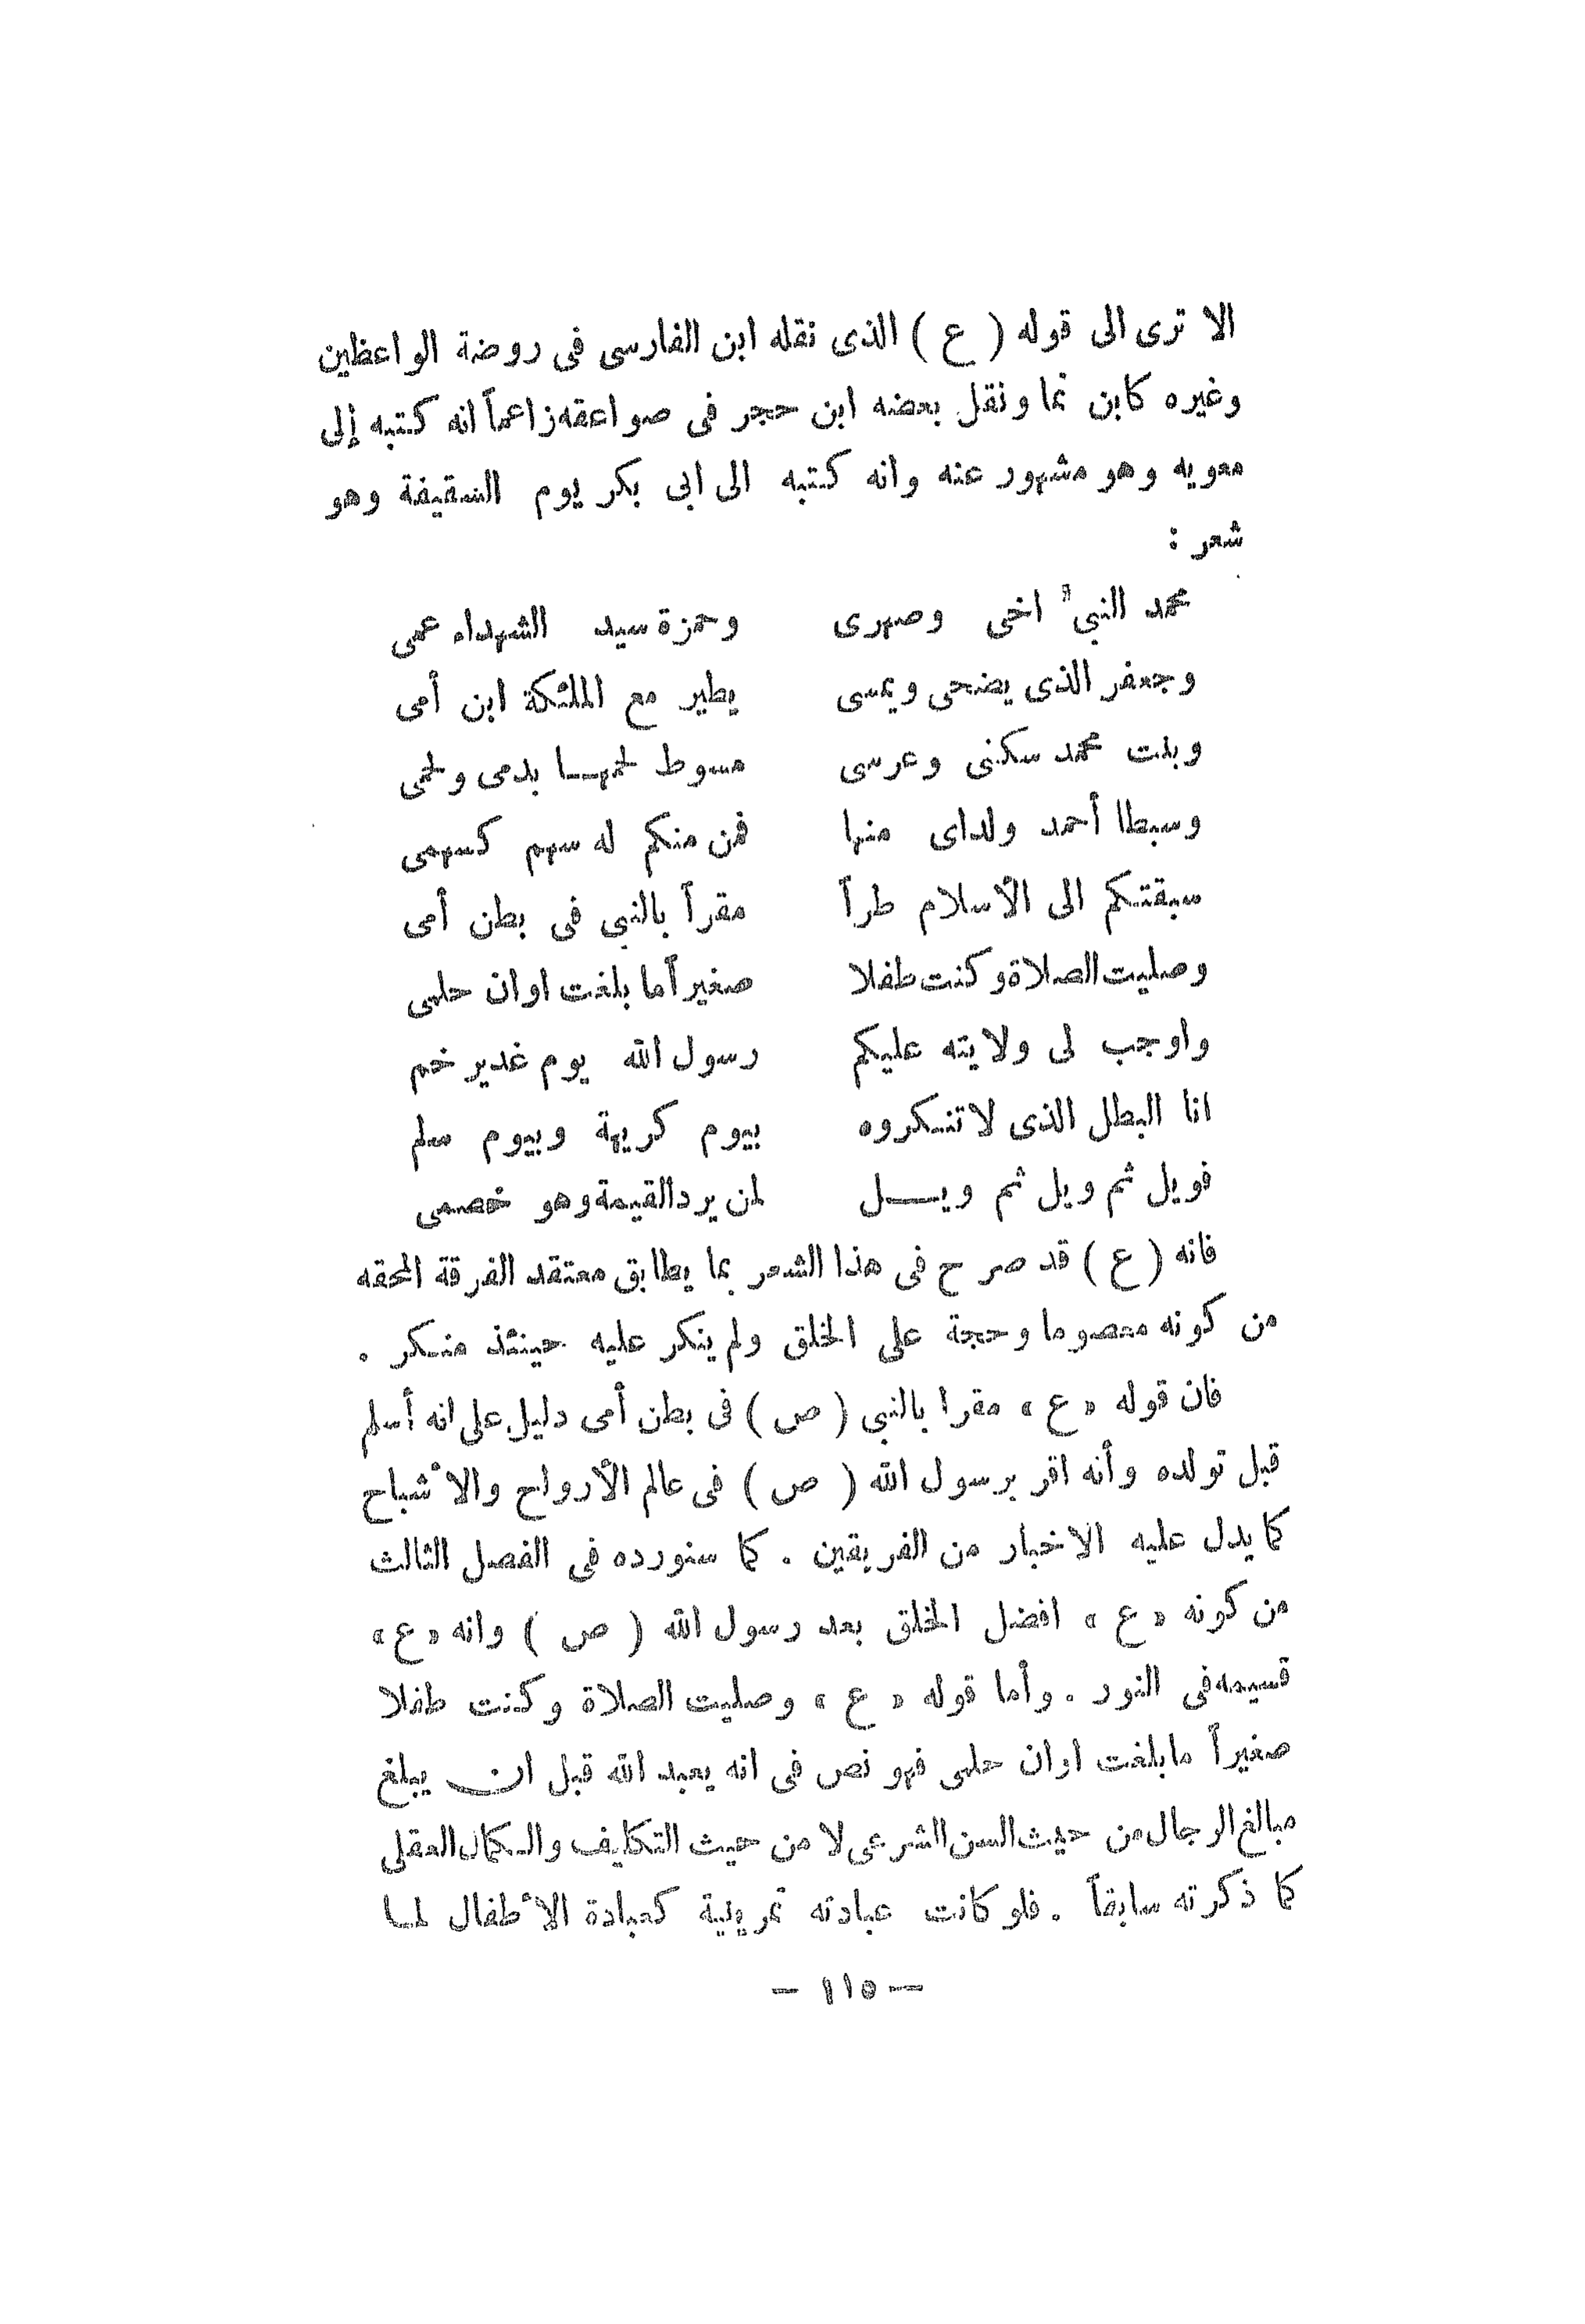 الا ترى الى قوله ( ع ) الذى نقله ابن الفارسى فى روضة الواعظين
وغيره كابن نما ونقل بعضه ابن حجر فى صواعقه زاعماً انه كتبه إلى
معويه وهو مشهور عنه وانه كتبه الى ابى بكر يوم السقيفة وهو
شعر :
محمد النبي اخى وصهرى وحمزة سيد الشهداء عمى
وجعفر الذى يضحى ويمسى يطير مع الملئكة ابن أمى
وبنت محمد سكنى وعرسى مسوط لحمهـا بدمى ولحمى
وسبطا أحمد ولداى منها فمن منكم له سهم كسهمى
سبقتكم الى الأسلام طراً مقراً بالنبي فى بطن أمى
وصليت الصلاة وكنت طفلا صغيراً ما بلغت اوان حلمى
واوجب لى ولايته عليكم رسول الله يوم غدير خم
انا البطل الذى لا تنكروه بيوم كريهة وبيوم سلم
فويل ثم ويل ثم ويـــل لمن يرد القيمة وهو خصمى
فانه ( ع ) قد صرح فى هذا الشعر بما يطابق معتقد الفرقة المحقه
من كونه معصوما وحجة على الخلق ولم ينكر عليه حينئذ منكر .
فان قوله « ع » مقرا بالنبي ( ص ) فى بطن أمى دليل على انه أسلم
قبل تولده وأنه اقر برسول الله ( ص ) فى عالم الأرواح والأشباح
كما يدل عليه الاخبار من الفريقين . كما سنورده فى الفصل الثالث
من كونه « ع » افضل الخلق بعد رسول الله ( ص ) وانه « ع »
قسيمه فى النور . وأما قوله « ع » وصليت الصلاة وكنت طفلا
صغيراً ما بلغت اوان حلمى فهو نص فى انه يعبد الله قبل ان يبلغ
مبالغ الرجال من حيث السن الشرعى لا من حيث التكليف والكمال العقلى
كما ذكرته سابقاً . فلو كانت عبادته تمرينية كعبادة الأطفال لمـا
— ١١٥ —